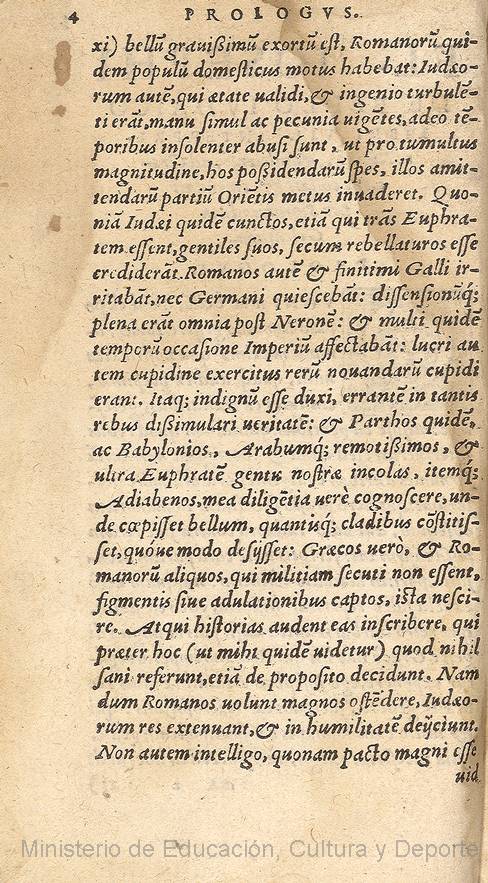 4 PROLOGVS.
xi) bellũ grauißimũ exortũ est, Romanorũ qui-
dem populũ domesticus motus habebat: Iudæo-
rum autẽ, qui ætate ualidi, & ingenio turbulẽ-
ti erãt, manu simul ac pecunia uigẽtes, adeo tẽ-
poribus insolenter abusi sunt, ut pro tumultus
magnitudine, hos poßidendarũ spes, illos amit-
tendarũ partiũ Oriẽtis metus inuaderet. Quo-
niã Iudæi quidẽ cunctos, etiã qui trãs Euphra-
tem essent, gentiles suos, secum rebellaturos esse
crediderãt. Romanos autẽ & finitimi Galli ir-
ritabãt, nec Germani quiescebãt: dissensionũq́;
plena erãt omnia post Neronẽ: & multi quidẽ
temporũ occasione Imperiũ affectabãt: lucri au
tem cupidine exercitus rerũ nouandarũ cupidi
erant. Itaq; indignũ esse duxi, errantẽ in tantis
rebus dißimulari ueritatẽ: & Parthos quidẽ,
ac Babylonios, Arabumq́; remotißimos, &
ultra Euphratẽ gentis nostræ incolas, itemq́;
Adiabenos, mea diligẽtia uerè cognoscere, un-
de cœpisset bellum, quantisq́; cladibus cõstitis-
set, quóue modo desijsset: Græcos uerò, & Ro-
manorũ aliquos, qui militiam secuti non essent,
figmentis siue adulationibus captos, ista nesci-
re. Atqui historias audent eas inscribere, qui
præter hoc (ut mihi quidẽ uidetur) quod nihil
sani referunt, etiã de proposito decidunt. Nam
dum Romanos uolunt magnos ostẽdere, Iudæo-
rum res extenuant, & in humilitatẽ deijciunt.
Non autem intelligo, quonam pacto magni esse
uid
Ministerio de Educación, Cultura y Deporte